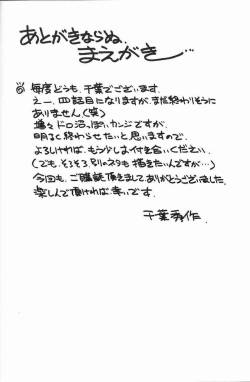 あとがきならぬ、
まえがき…
◎ 毎度どうも、千葉でございます。
えー、四話目になりますが、まだ終わりそうに
ありません。(笑)
増々ドロ沼っぽいカンジですが
明るく終わらせたいと思いますので、
よろしければ、もう少しお付き合いください。
(でも、そろそろ、別のネタも描きたいんですが…)
今回も、ご購読頂きましてありがとうございました。
楽しんで頂ければ幸いです。
千葉秀作